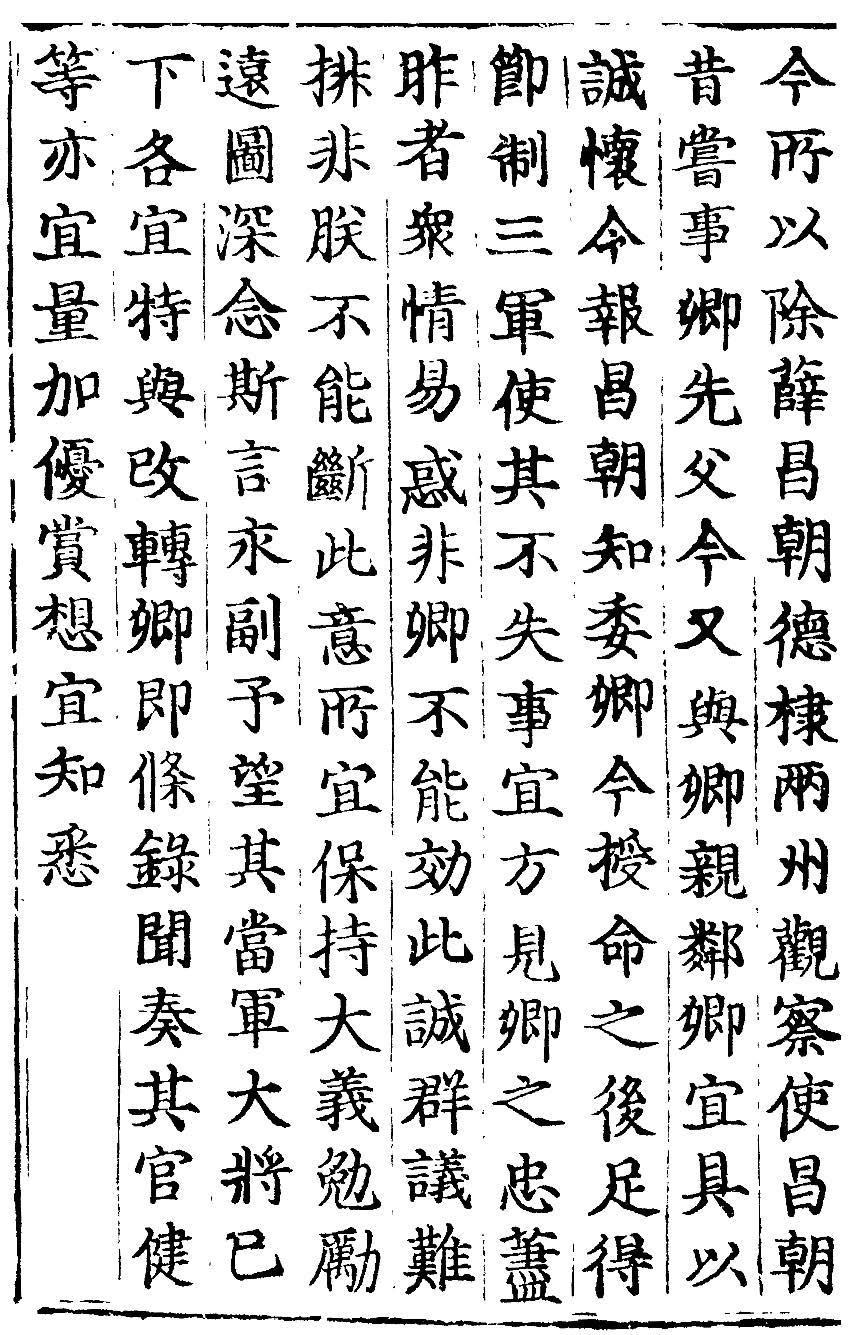 今所以除薛昌朝德棣兩州觀察使昌朝
昔嘗事卿先父今又與卿親鄰卿宜具以
誠懷令報昌朝知委卿今授命之後足得
節制三軍使其不失事宜方見卿之忠藎
昨者衆情易惑非卿不能効此誠群議難
排非朕不能斷此意所宜保持大義勉勵
遠圖深念斯言永副予望其當軍大將已
下各宜特與改轉卿即條錄聞奏其官健
等亦宜量加優賞想宜知悉